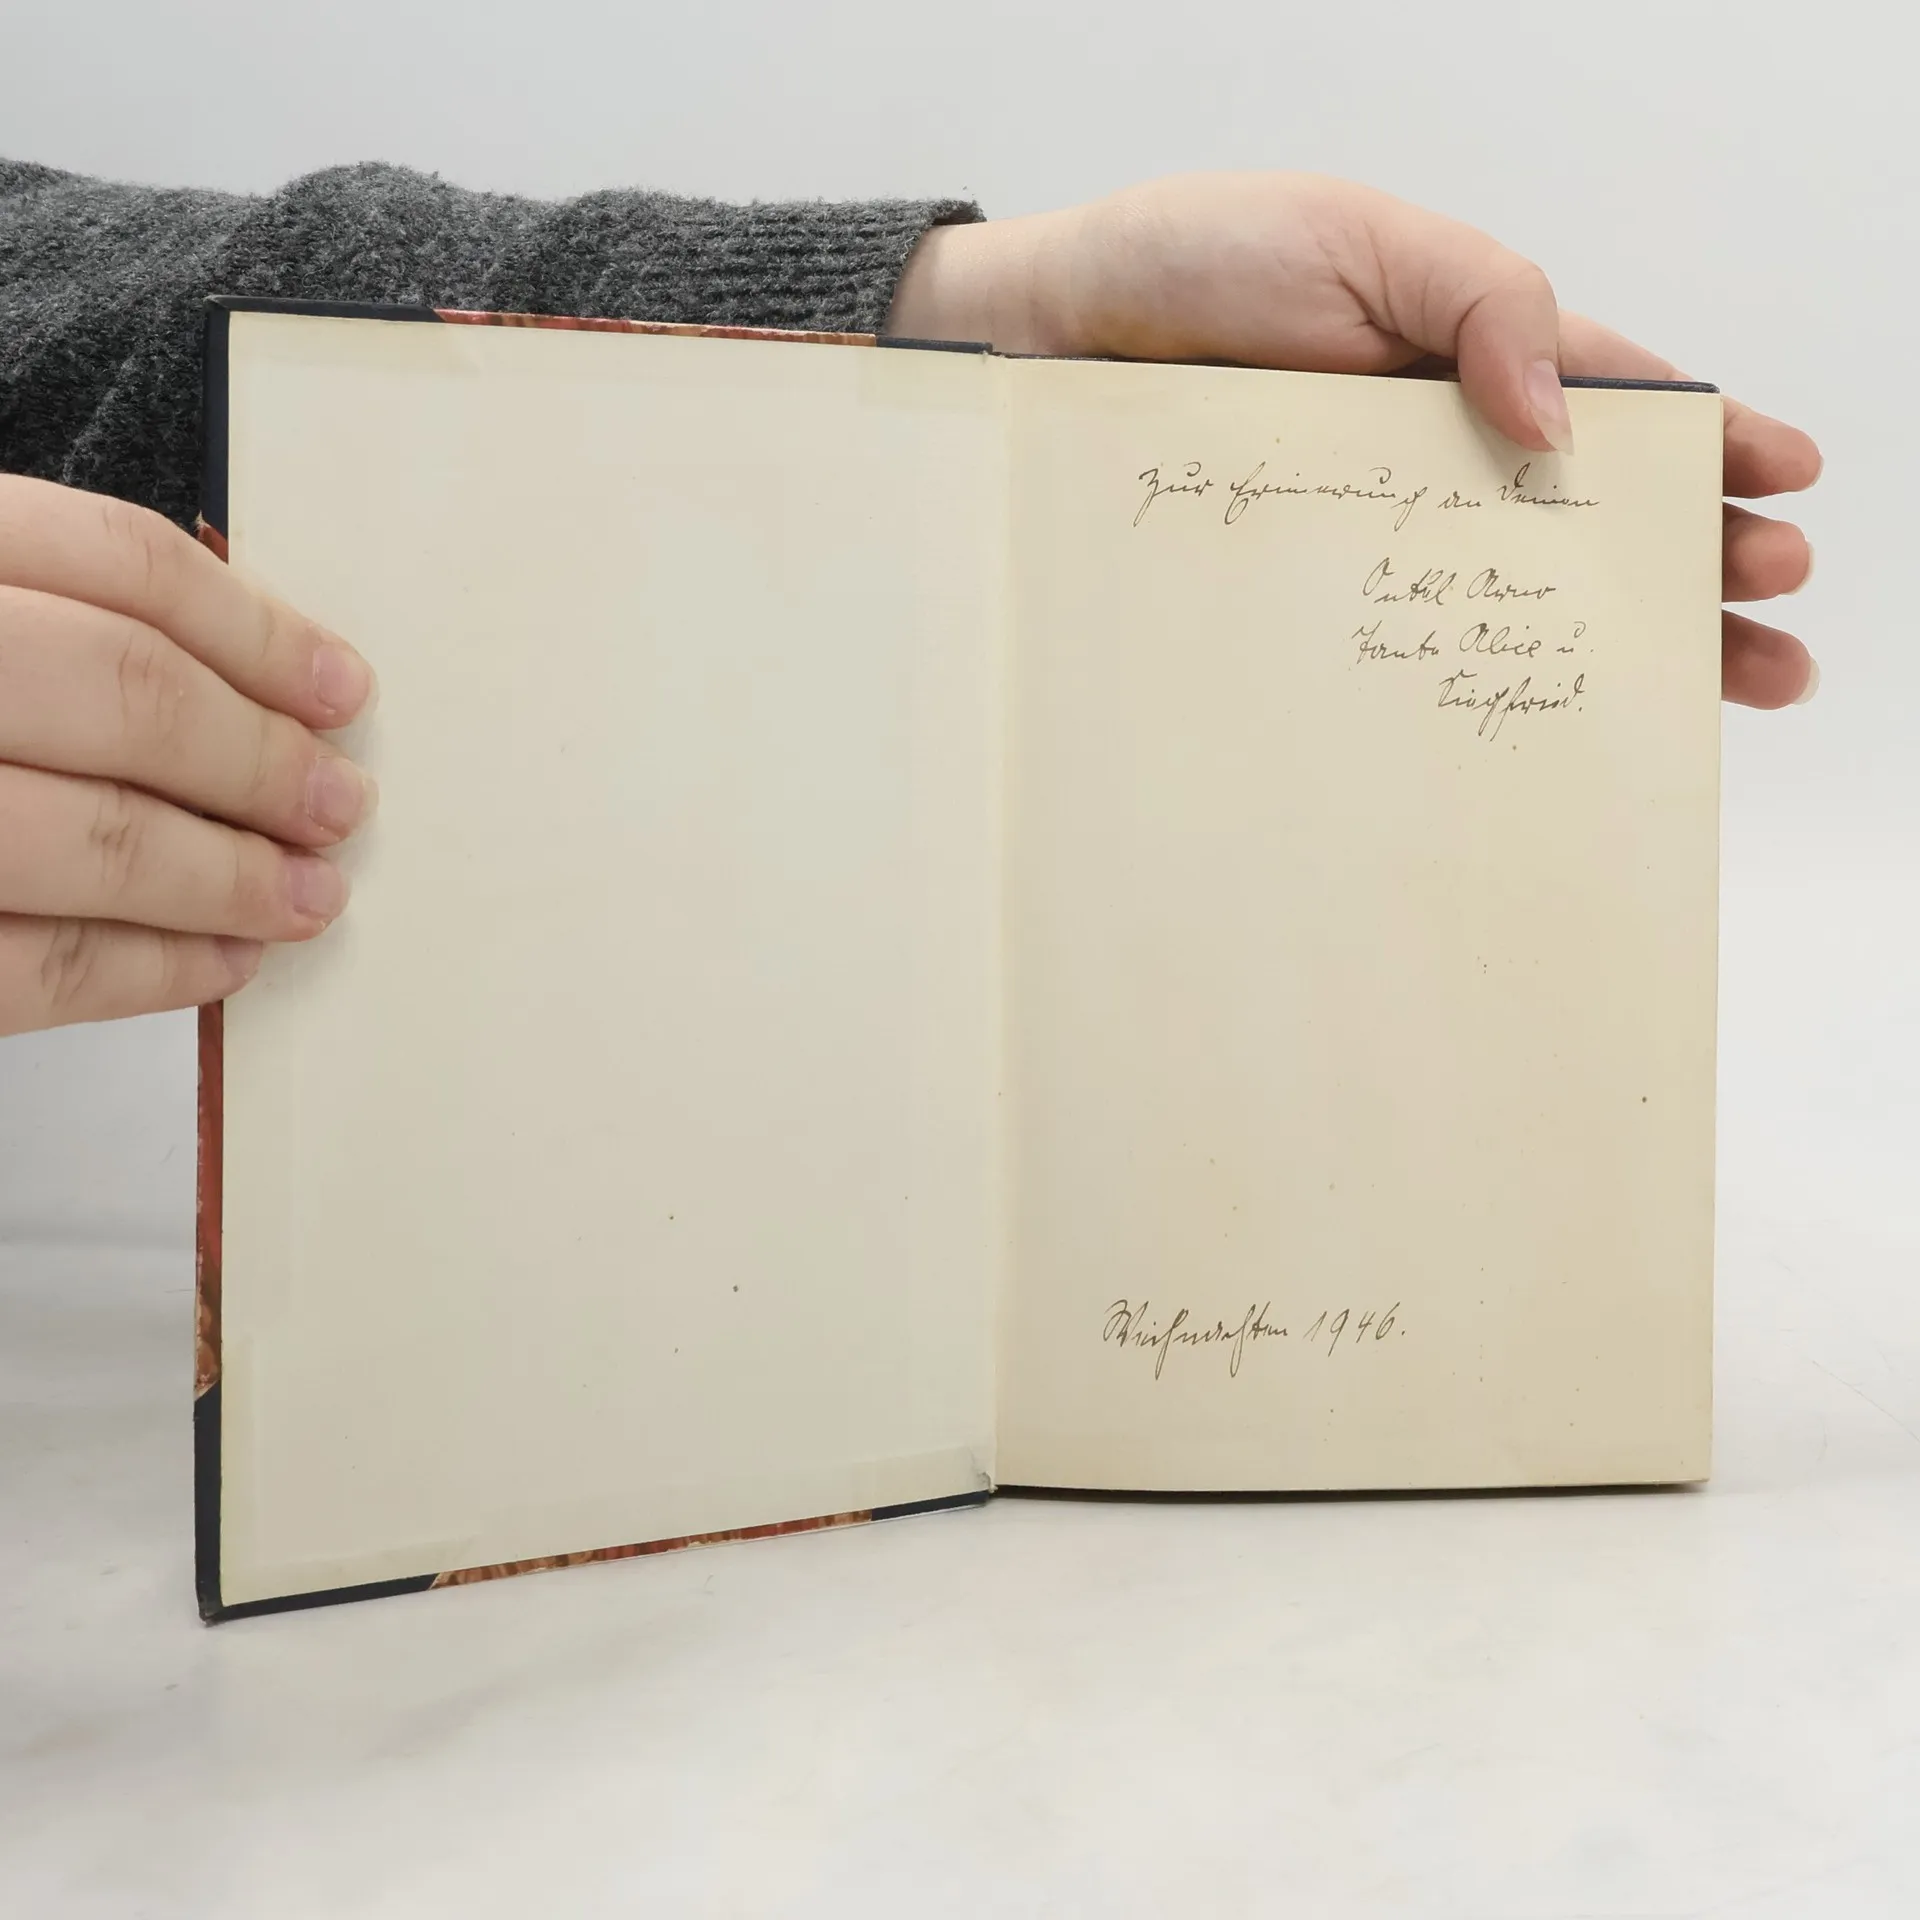 Zur Erinnerung an Deinen
Onkel Arno
Tante Alice u.
Siegfried.
Weihnachten 1946.